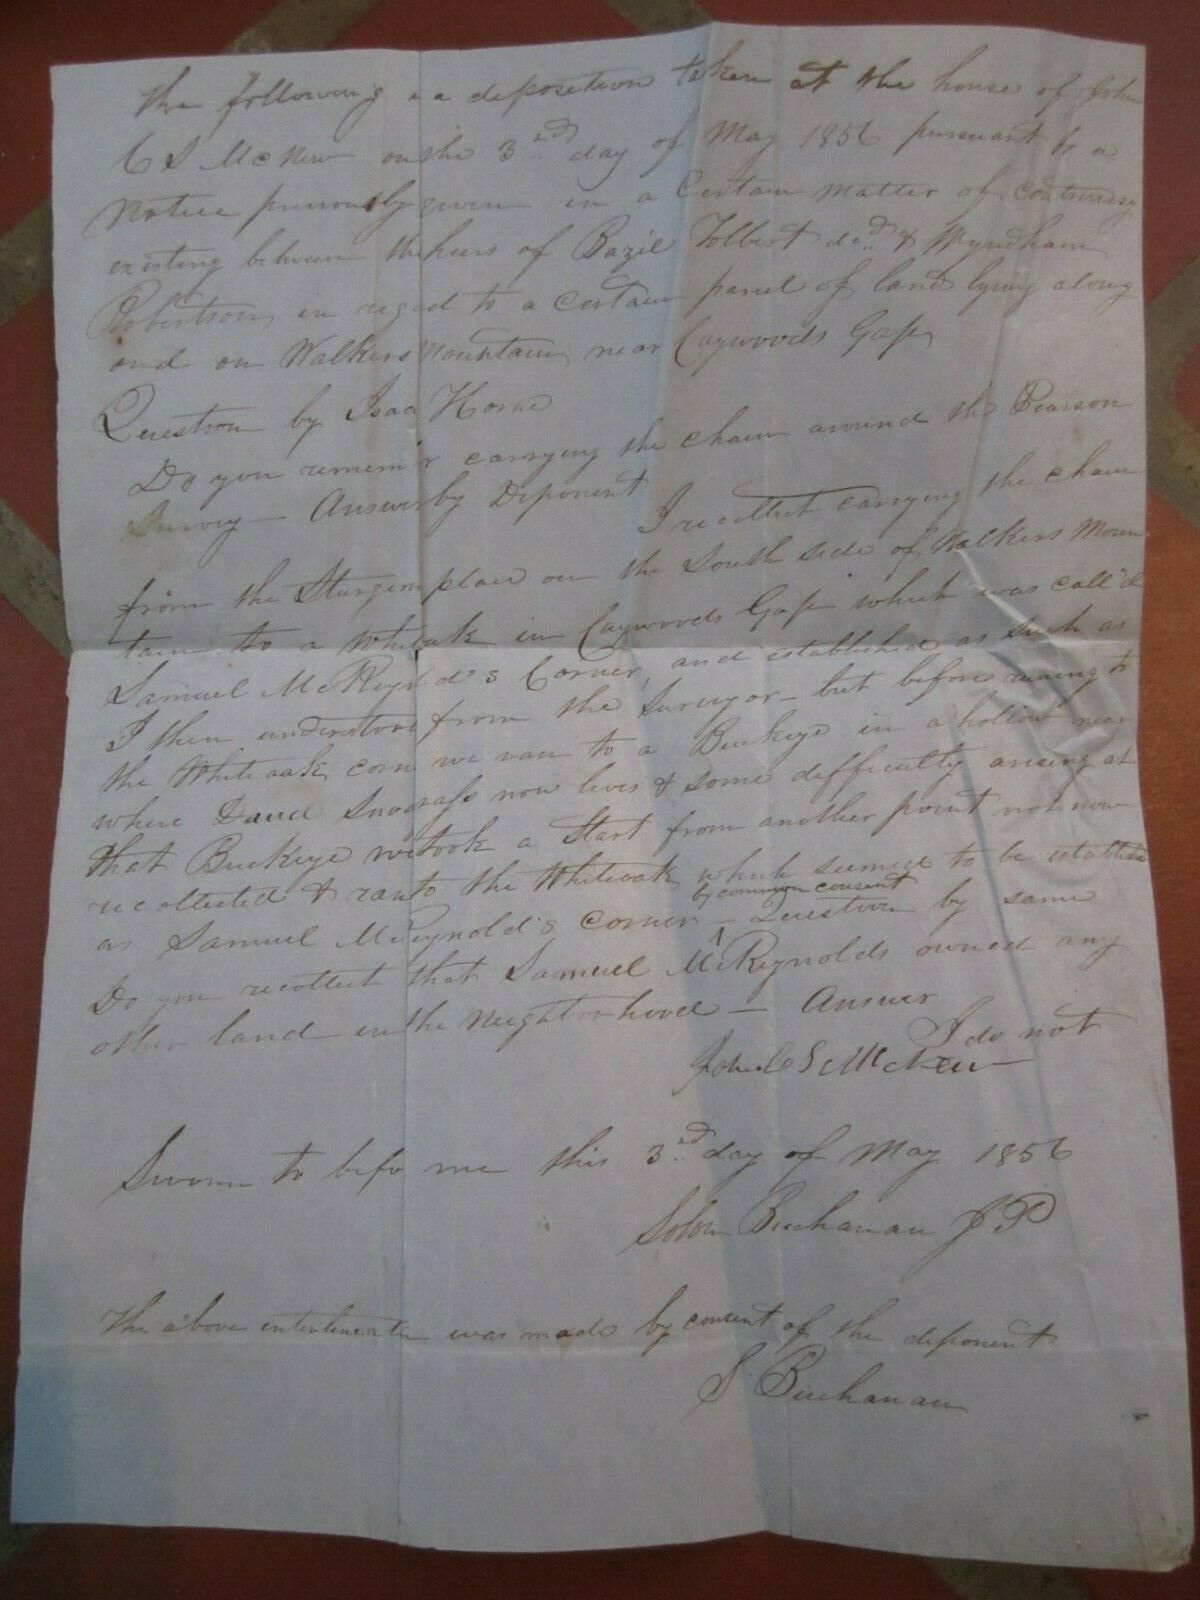 The following is a deposition taken at the house of John
C S McNew on the 3rd day of May 1856 pursuant to a
Notice previously given in a Certain matter of controversy
existing between the heirs of Bazil Tolbert decd & Wyndham
Robertson, in regard to a Certain parcel of land lying along
and on Walkers Mountain, near Caywoods Gap,
Question by Isaa Horne
Do you rememr carrying the chain around the Pearson
Survey — Answer by Deponent
I recollect carrying the chain
from the Sturgeon place on the South side of Walkers Moun-
tain to a White oak in Caywoods Gap which was call'd
Samuel McReynold's Corner, and established as such as
I then understood from the Surveyor — but before runing to
the Whiteoak corn we ran to a Buckeye in a hollow near
where David Snodgrass now lives & some difficulty arising at
that Buckeye we took a Start from another point not now
recollected & ran to the Whiteoak, which seemed to be established
by common consent
as Samuel McReynold's corner — Question by same
Do you recollect that Samuel McReynolds owned any
other land in the Neighborhood — Answer
I do not
John C S McNew
Sworn to befo me this 3rd day of May 1856
Solon Buchanan J P
The above interlineation was made by consent of the deponent
S Buchanan